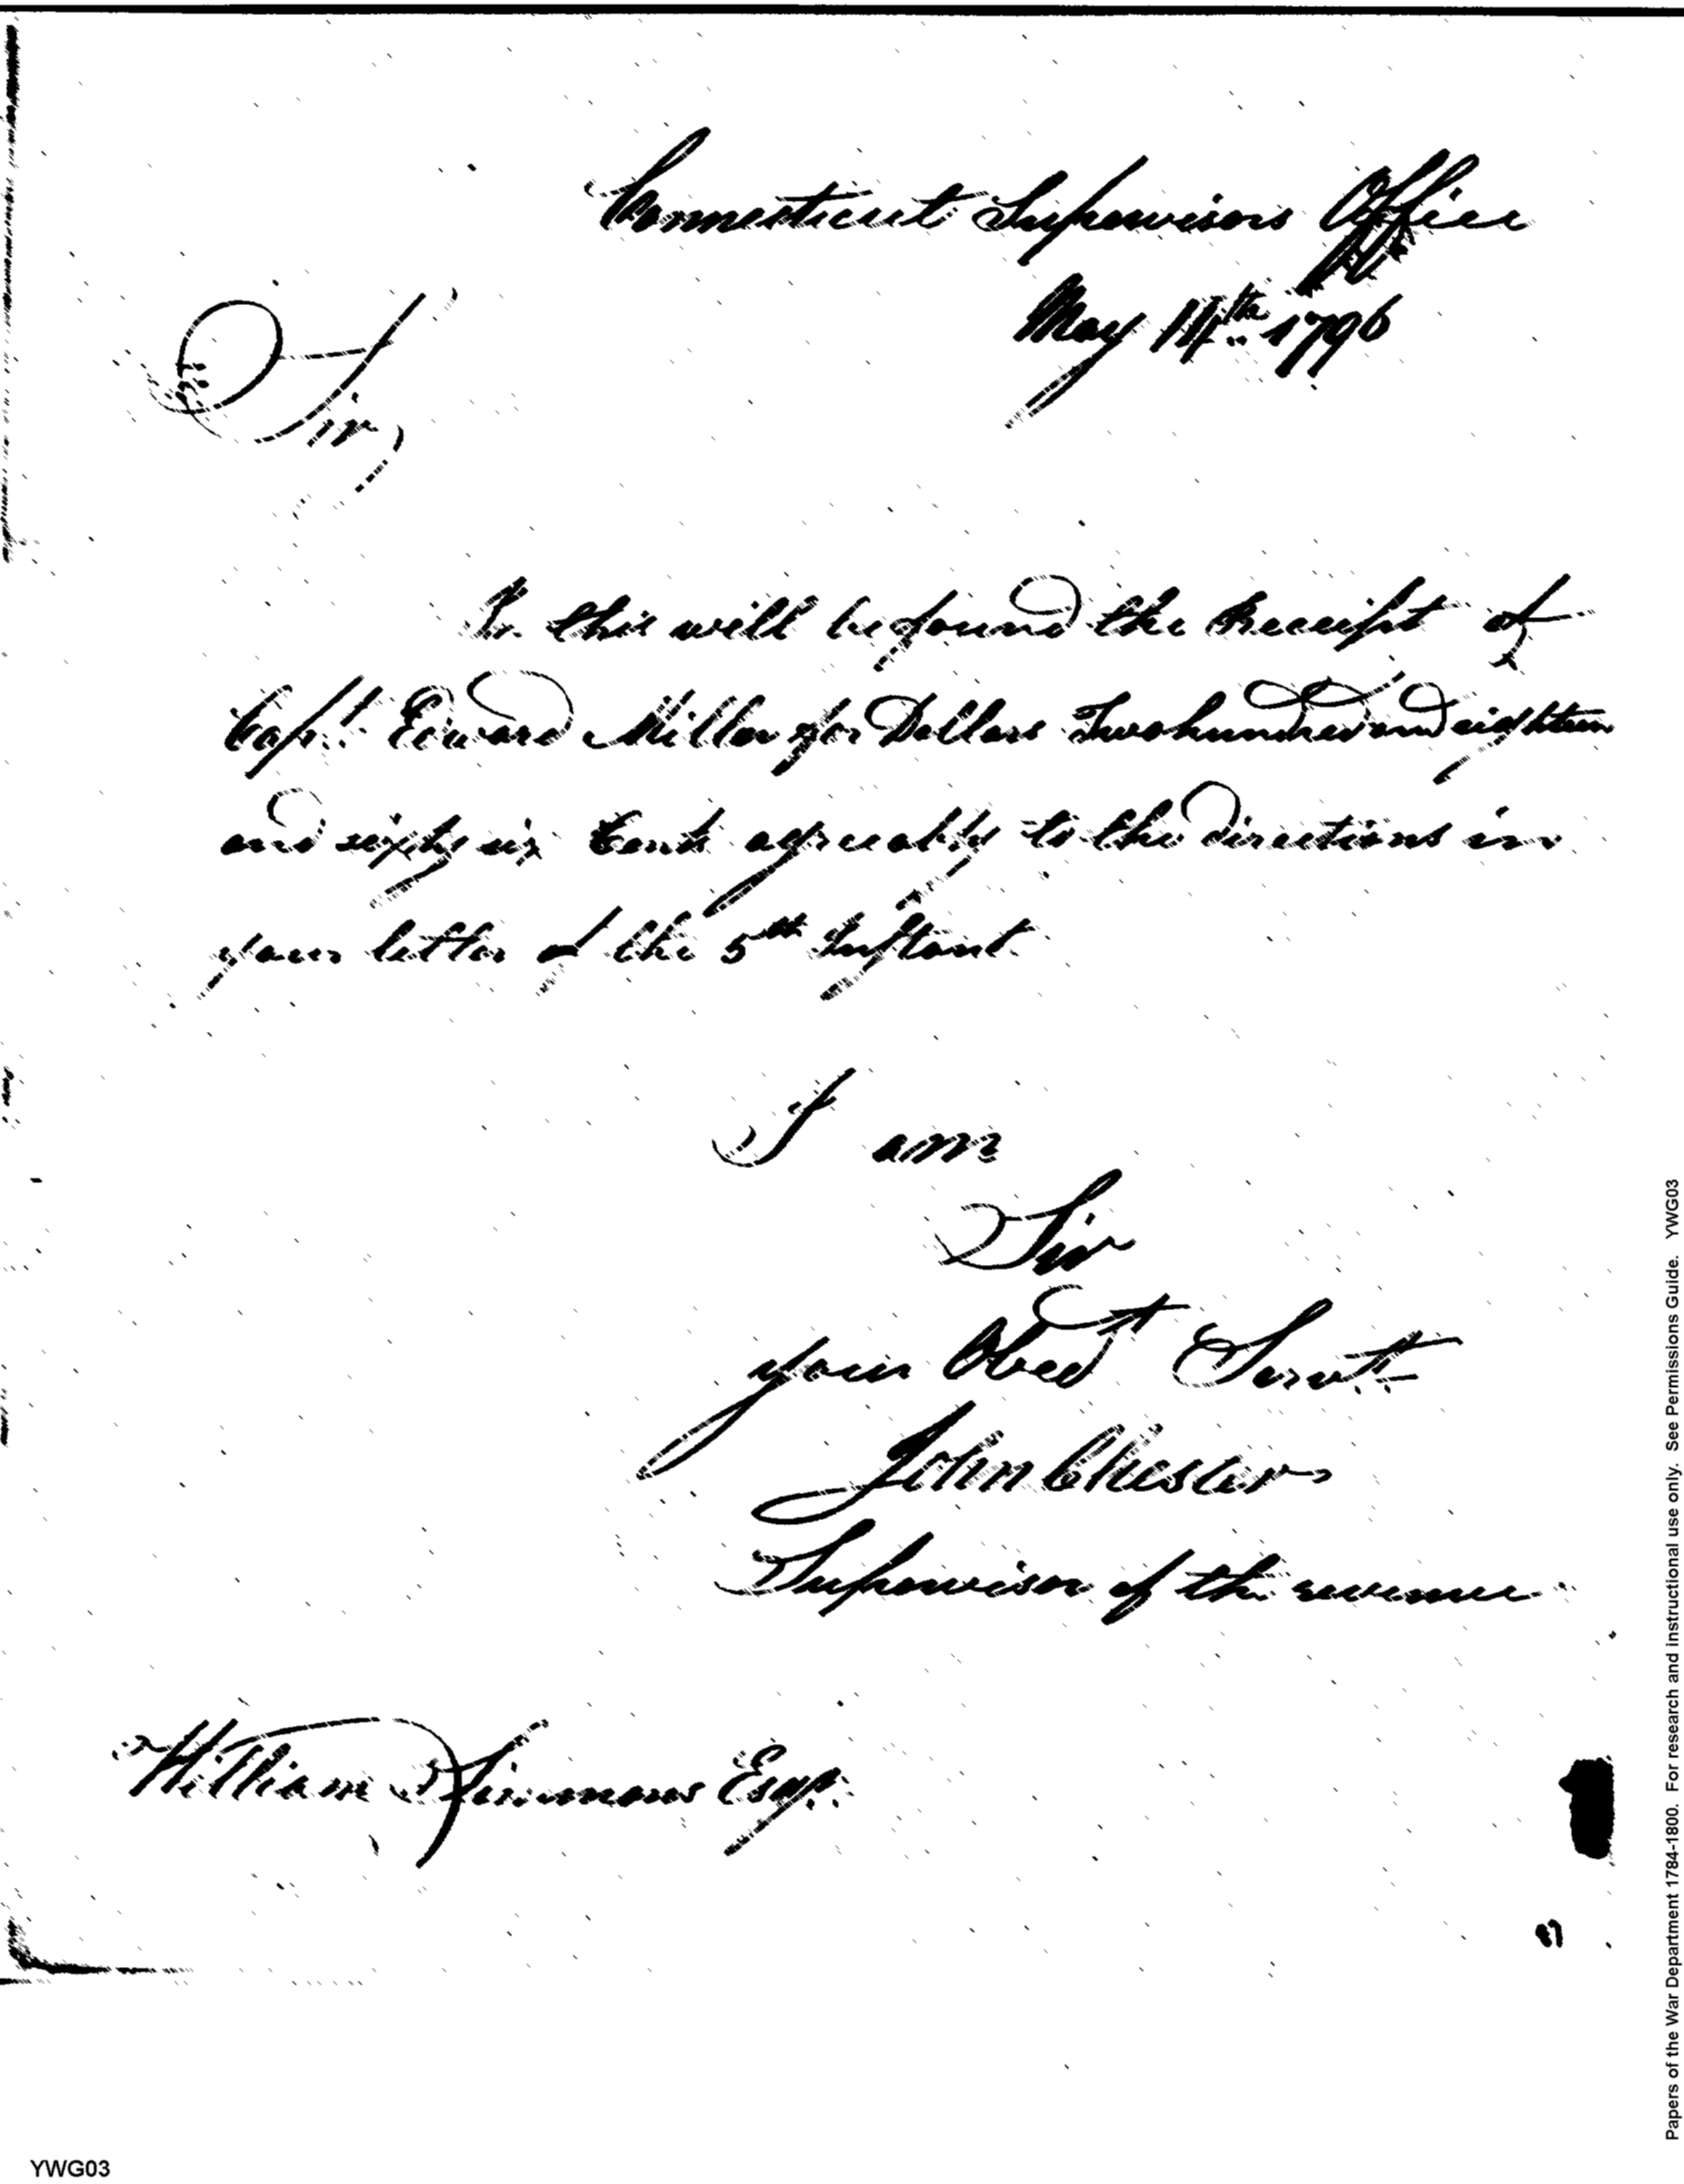 Connecticut Supervisors Office
May 14th 1796
Sir,
In this will be found the Receipt of
Capt. Edward Miller for Dollars Two hundred and eighteen
and sixty six Cents agreeably to the directions in
your letter of the 5th Instant.
I am
Sir
your Obedt Servt
John Chester
Supervisor of the revenue
William Simmons Esqr.
Papers of the War Department 1784-1800. For research and instructional use only. See Permissions Guide. YWG03
YWG03